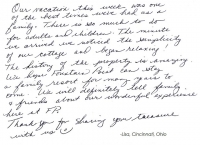 Our vacation this week was one
of the best times we've had as a
family. There is so much to do
for adults and children. The minute
we arrived we noticed the simplicity
of our cottage and began relaxing!
The history of the property is amazing.
We hope Fountain Point can stay
a family resort for many years to
come. We will definitely tell family
& friends about our wonderful experience
here at FP.
Thank you for sharing your treasure
with us!
-Lisa, Cincinnati, Ohio